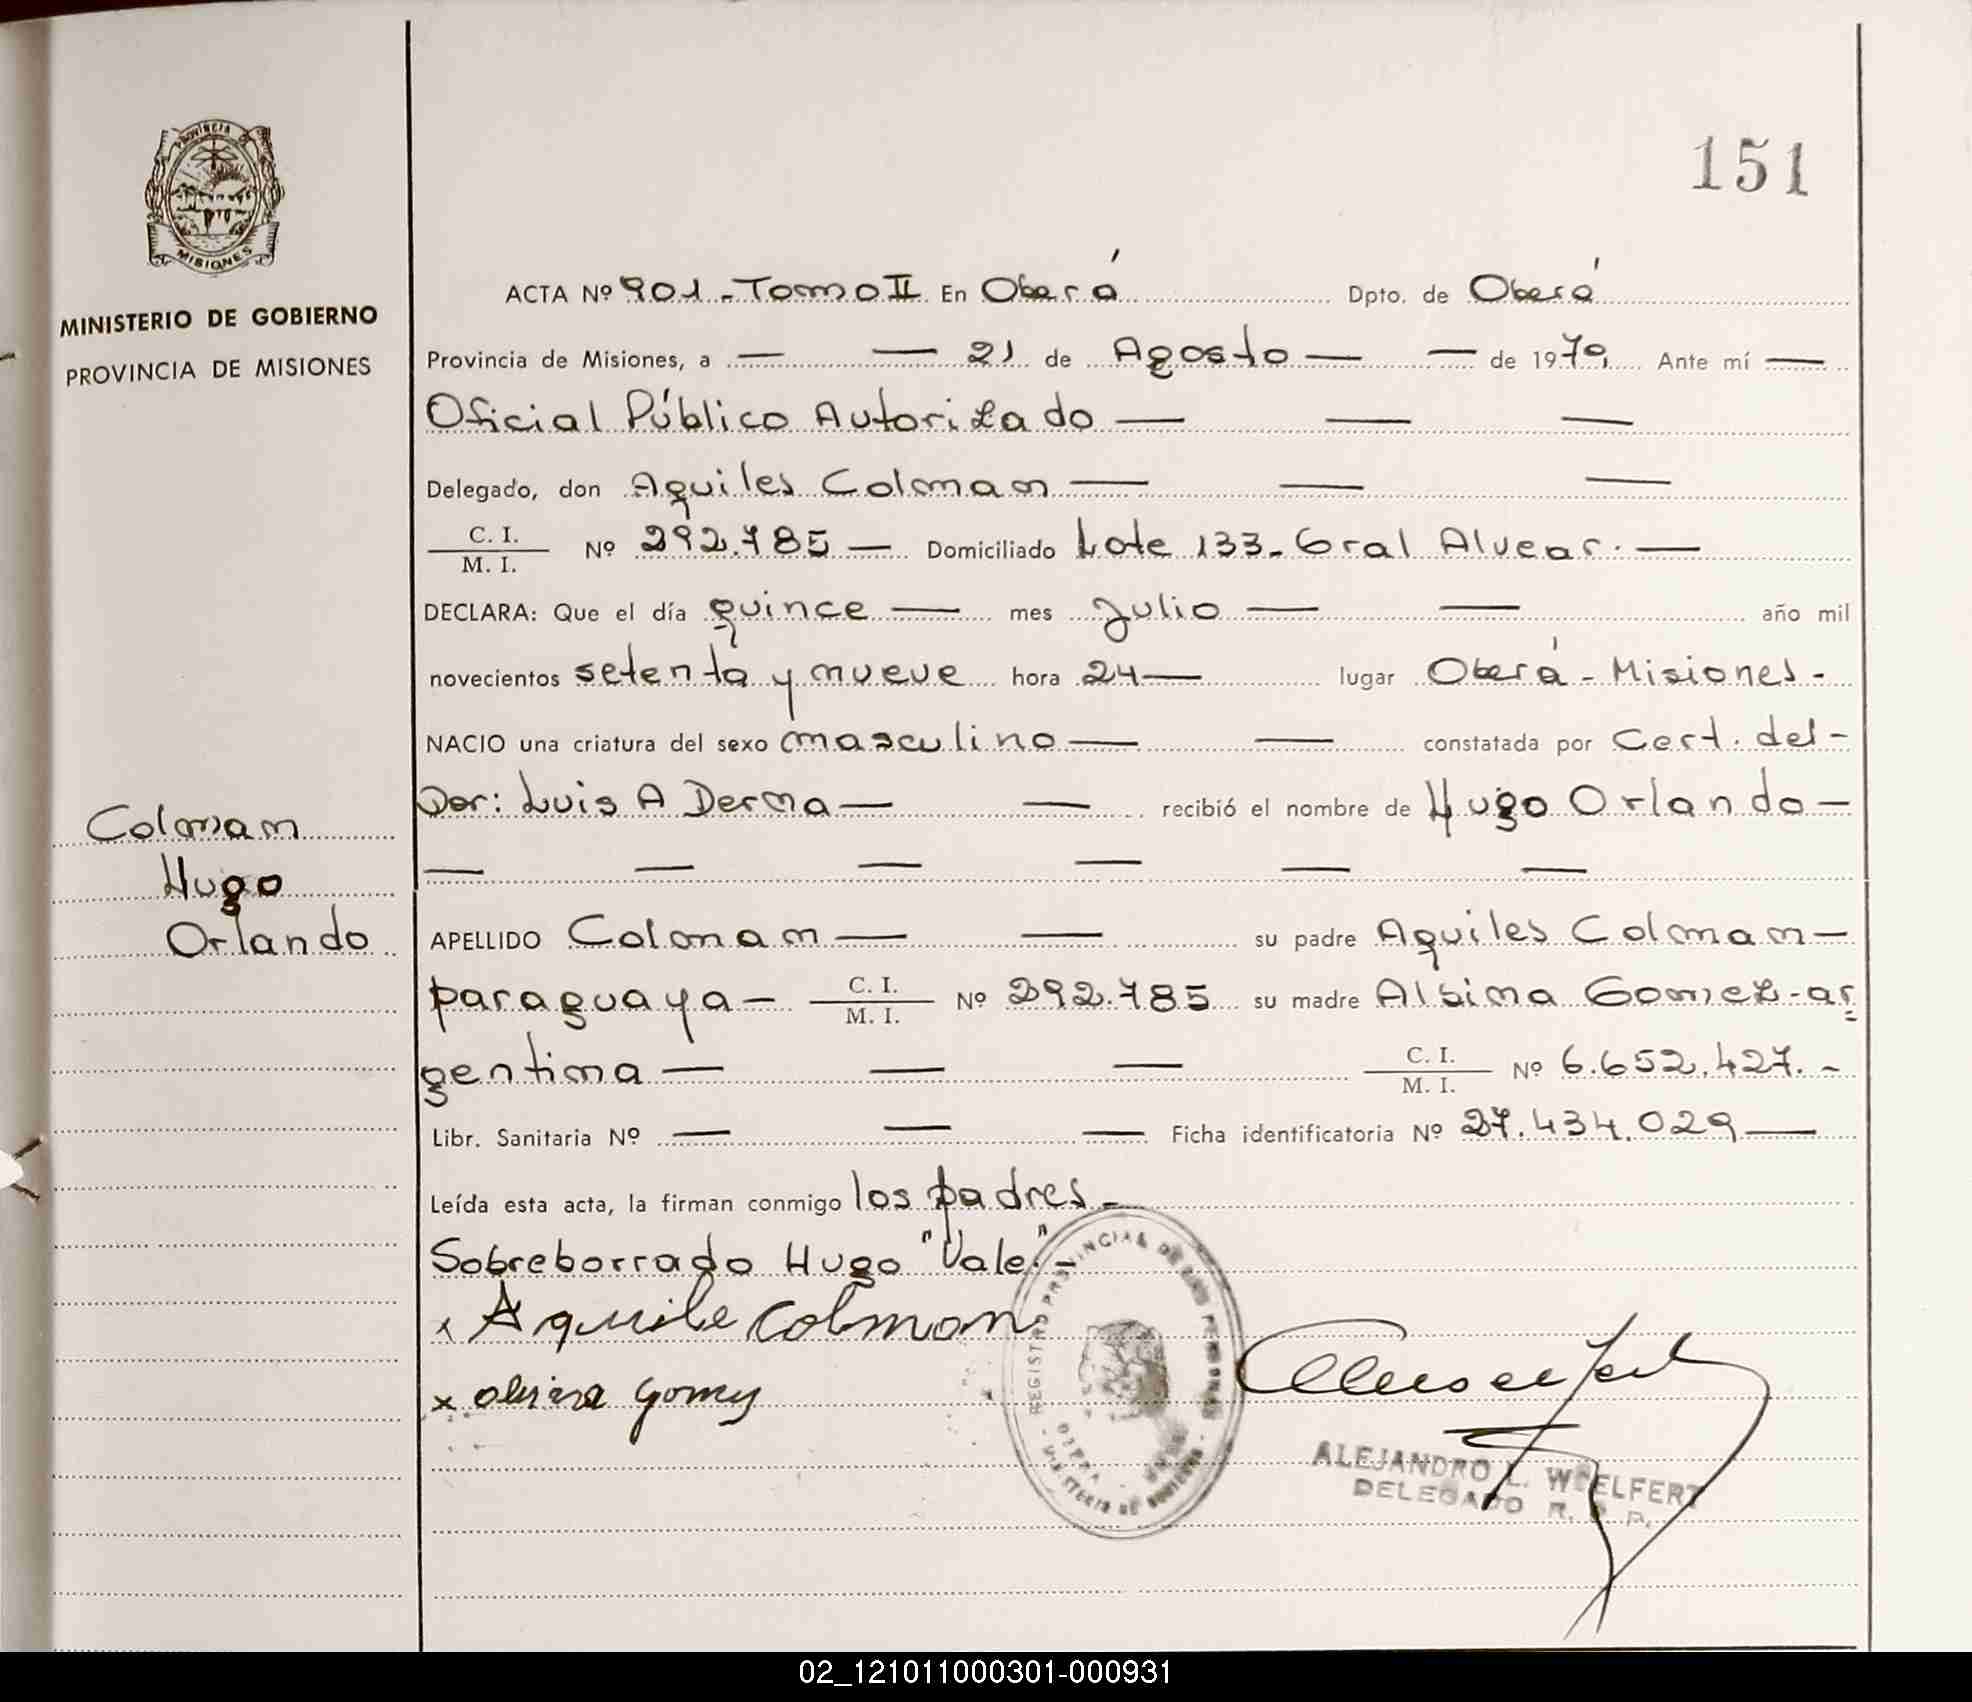 151
PROVINCIA DE
MISIONES
MINISTERIO DE GOBIERNO
PROVINCIA DE MISIONES
ACTA Nº 901 - Tomo II En Oberá Dpto. de Oberá
Provincia de Misiones, a — — 21 de Agosto — — de 1979 Ante mí —
Oficial Público Autorizado — — —
Delegado, don Aquiles Colman — — —
C. I.
M. I.
Nº 292.785 — Domiciliado Lote 133 - Gral Alvear. —
DECLARA: Que el día quince — mes Julio — — año mil
novecientos setenta y nueve hora 24 — lugar Oberá - Misiones -
NACIO una criatura del sexo masculino — — constatada por Cert. del -
Dor: Luis A Derna — — recibió el nombre de Hugo Orlando —
— — — — — —
Colman
Hugo
Orlando
APELLIDO Colman — — su padre Aquiles Colman —
paraguaya — C. I. / M. I. Nº 292.785 su madre Albina Gomez - ar
gentina — — — C. I. / M. I. Nº 6.652.427. -
Libr. Sanitaria Nº — — — Ficha identificatoria Nº 27.434.029 —
Leída esta acta, la firman conmigo los padres -
Sobreborrado Hugo "Vale" -
x Aquile Colman
x Gomez
REGISTRO PROVINCIAL DE LAS PERSONAS
MINISTERIO DE GOBIERNO
OBERA
ALEJANDRO L. WOELFERT
DELEGADO R. P. P.
02_121011000301-000931